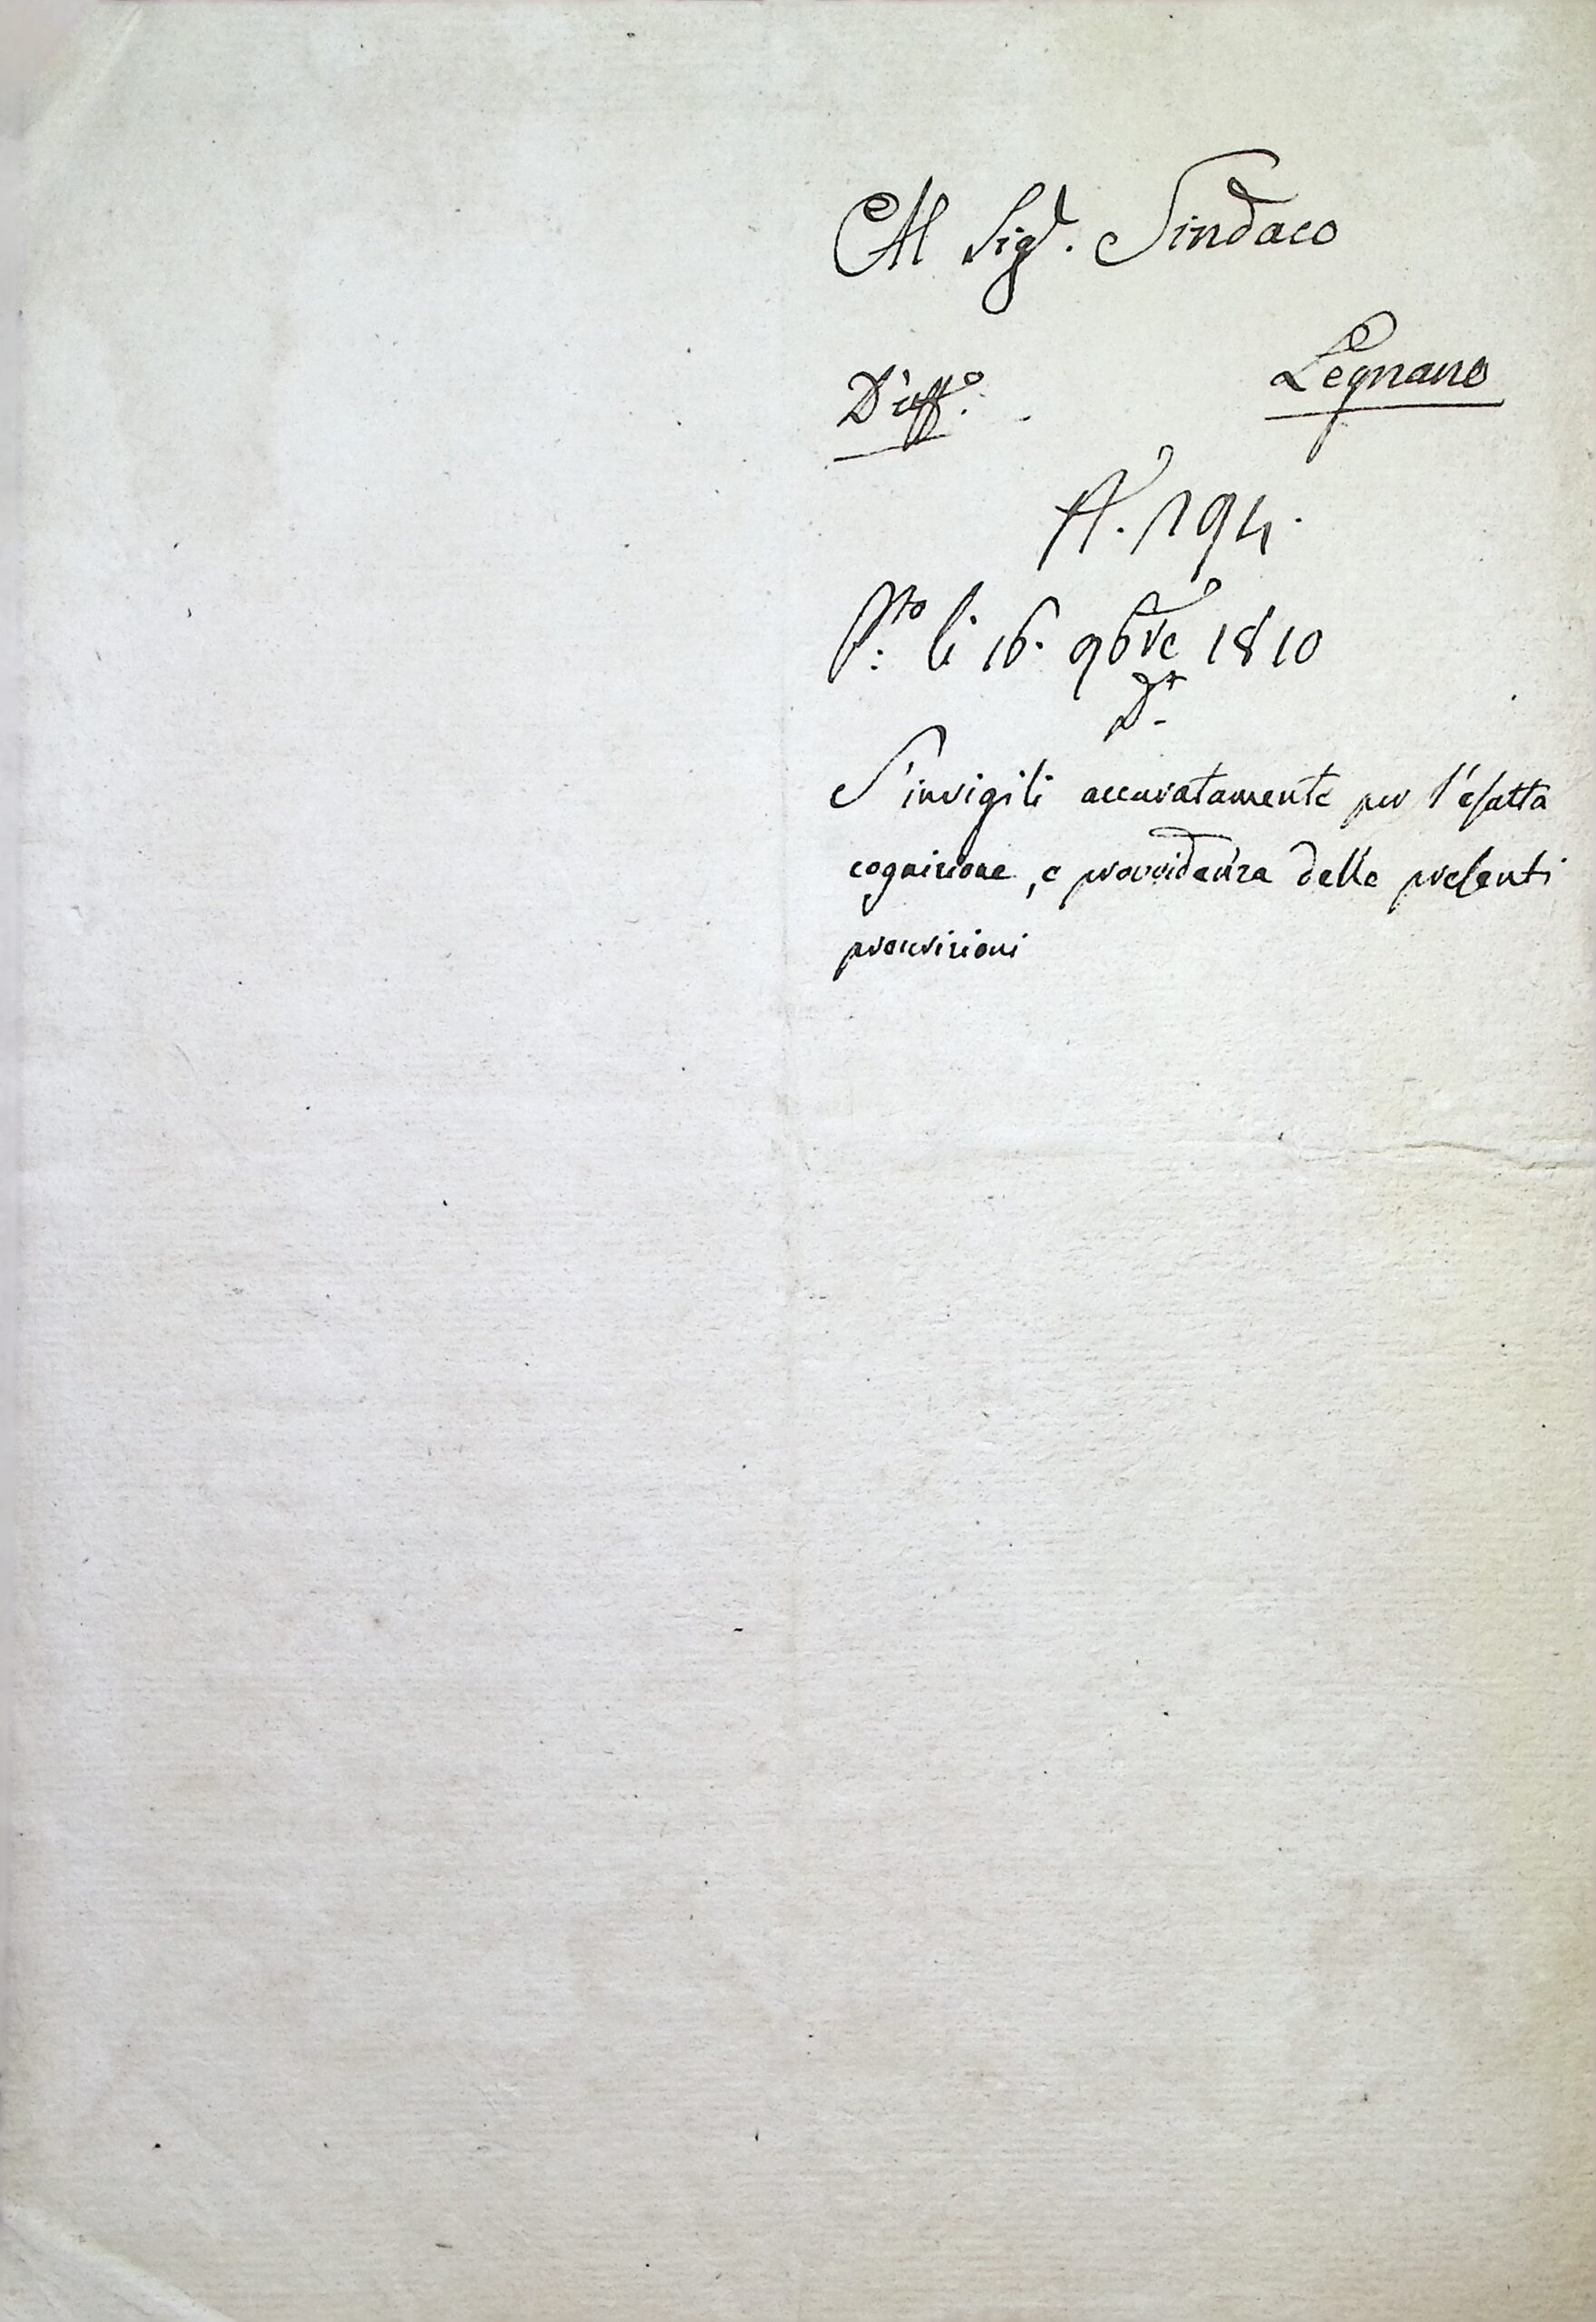 Al Sig.r Sindaco
Legnano
D'uff.o
N. 194.
P.to li 16. 9bre 1810
D.r
S'invigili accuratamente per l'esatta
cognizione, e provvidenza delle presenti